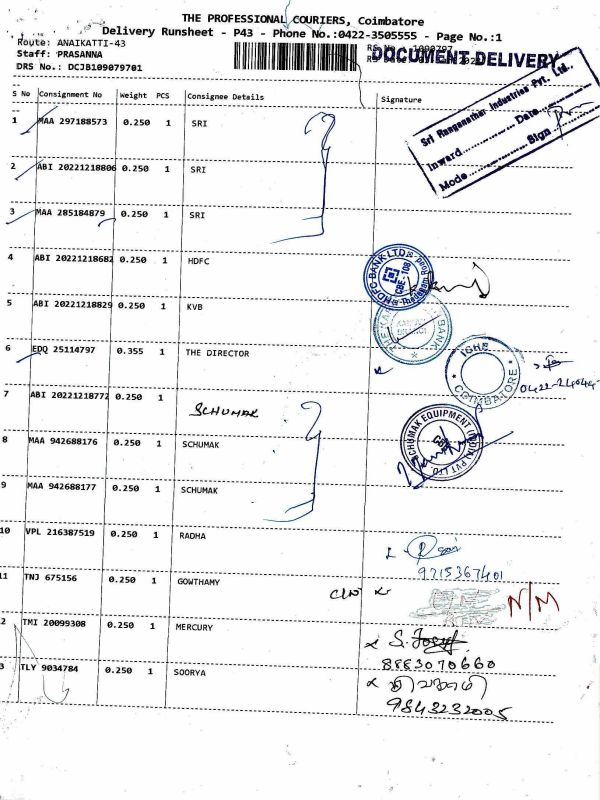 THE PROFESSIONAL COURIERS, Coimbatore
Delivery Runsheet - P43 - Phone No.:0422-3505555 - Page No.:1
Route: ANAIKATTI-43
Staff: PRASANNA
DRS No.: DCJB109079701
DOCUMENT DELIVERY
S No Consignment No Weight PCS Consignee Details Signature
Sri Ranganathar Industries Pvt. Ltd.,
Inward Date
Mode Sign
1 MAA 297188573 0.250 1 SRI
2 ABI 20221218806 0.250 1 SRI
3 MAA 285184879 0.250 1 SRI
4 ABI 20221218682 0.250 1 HDFC
HDFC BANK LTD
CBE - 108
Thadagam Road
5 ABI 20221218829 0.250 1 KVB
BANK
6 EDQ 25114797 0.355 1 THE DIRECTOR
COIMBATORE
7 ABI 20221218772 0.250 1 SCHUMAK
SCHUMAK EQUIPMENT (INDIA) PVT LTD
8 MAA 942688176 0.250 1 SCHUMAK
9 MAA 942688177 0.250 1 SCHUMAK
10 VPL 216387519 0.250 1 RADHA
9215367401
11 TNJ 675156 0.250 1 GOWTHAMY
N/M
2 TMI 20099308 0.250 1 MERCURY
8883070660
3 TLY 9034784 0.250 1 SOORYA
9843232005